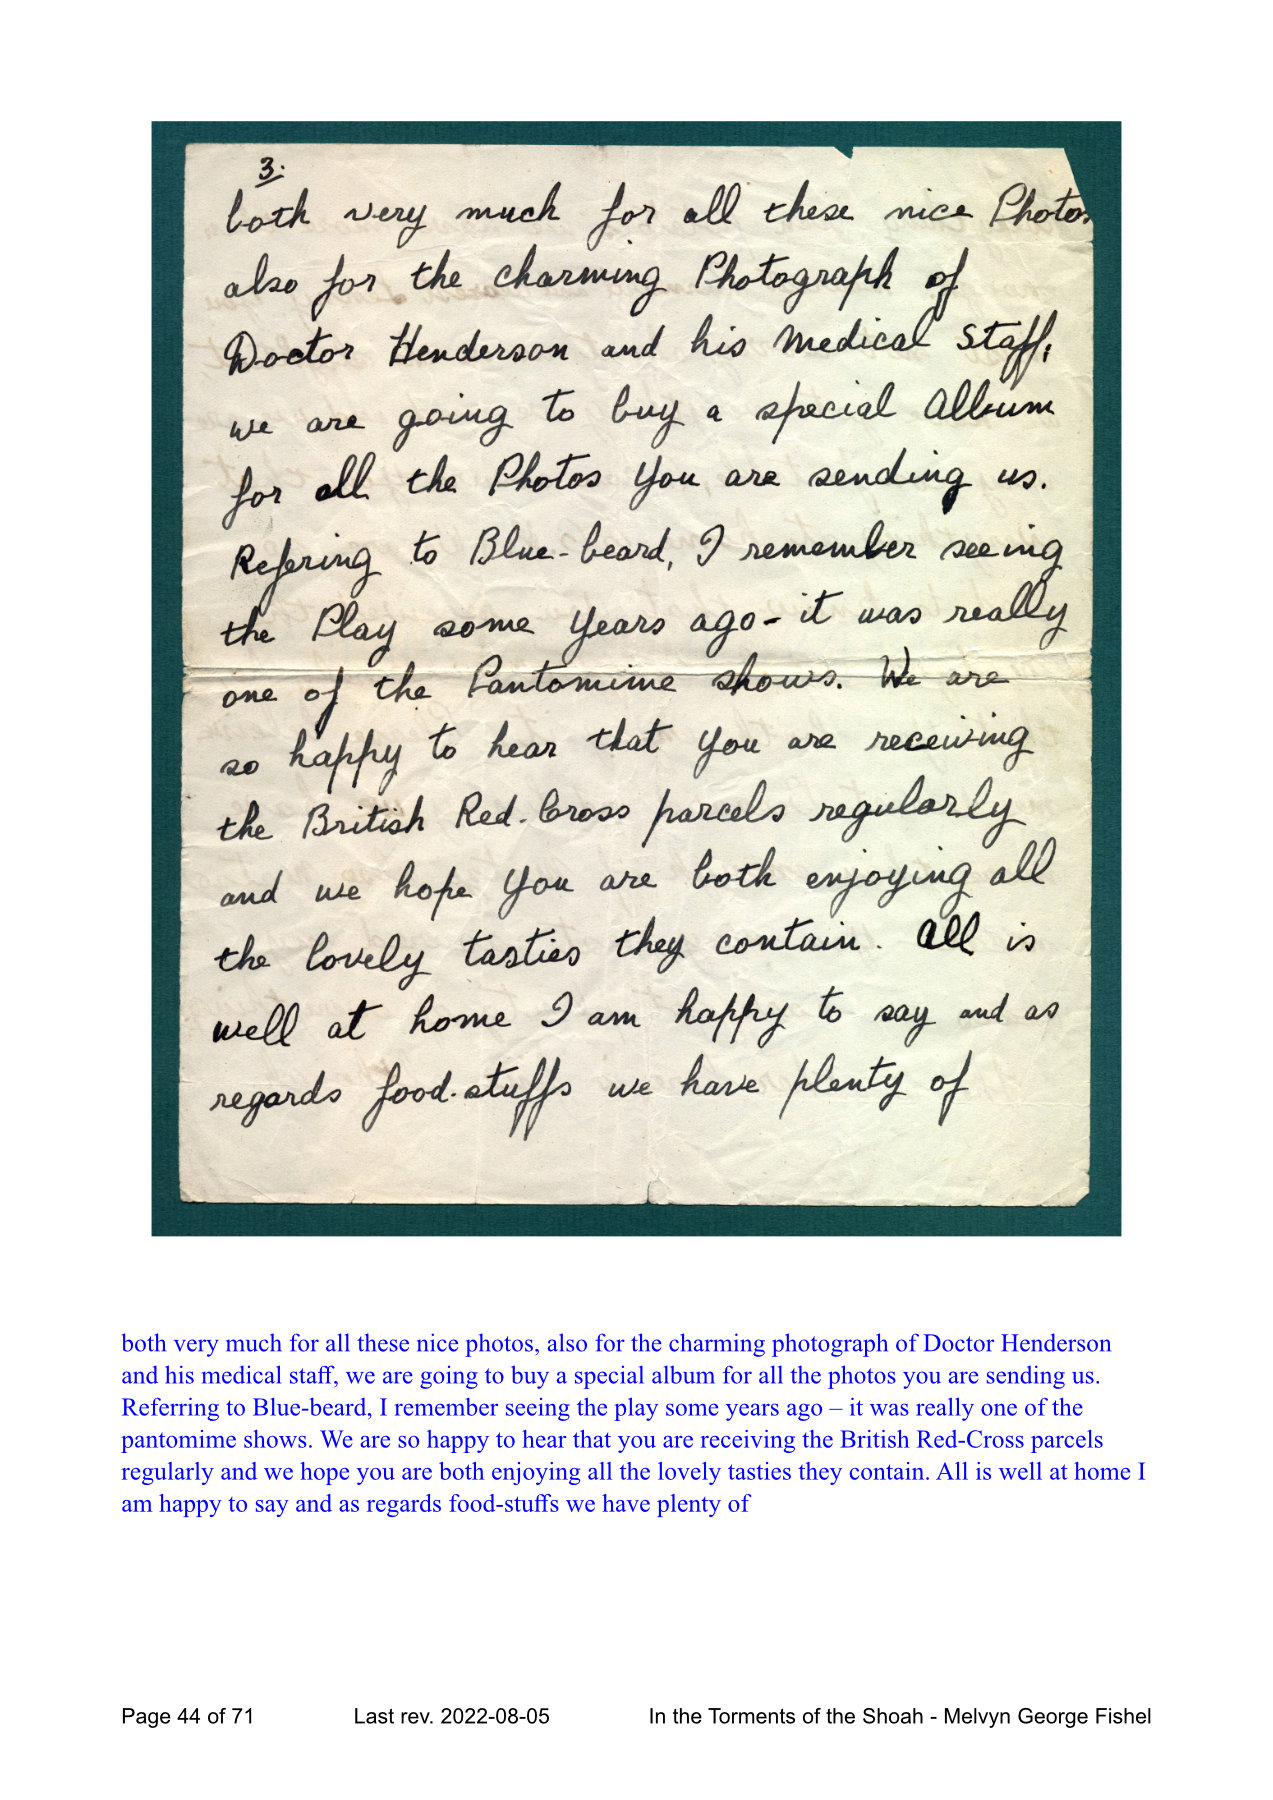 3.
both very much for all these nice Photos
also for the charming Photograph of
Doctor Henderson and his Medical Staff,
we are going to buy a special Album
for all the Photos you are sending us.
Refering to Blue-beard, I remember seeing
the Play some years ago - it was really
one of the Pantomime shows. We are
so happy to hear that you are receiving
the British Red-Cross parcels regularly
and we hope you are both enjoying all
the lovely tasties they contain. All is
well at home I am happy to say and as
regards food-stuffs we have plenty of
both very much for all these nice photos, also for the charming photograph of Doctor Henderson
and his medical staff, we are going to buy a special album for all the photos you are sending us.
Referring to Blue-beard, I remember seeing the play some years ago – it was really one of the
pantomime shows. We are so happy to hear that you are receiving the British Red-Cross parcels
regularly and we hope you are both enjoying all the lovely tasties they contain. All is well at home I
am happy to say and as regards food-stuffs we have plenty of
Page 44 of 71 Last rev. 2022-08-05 In the Torments of the Shoah - Melvyn George Fishel